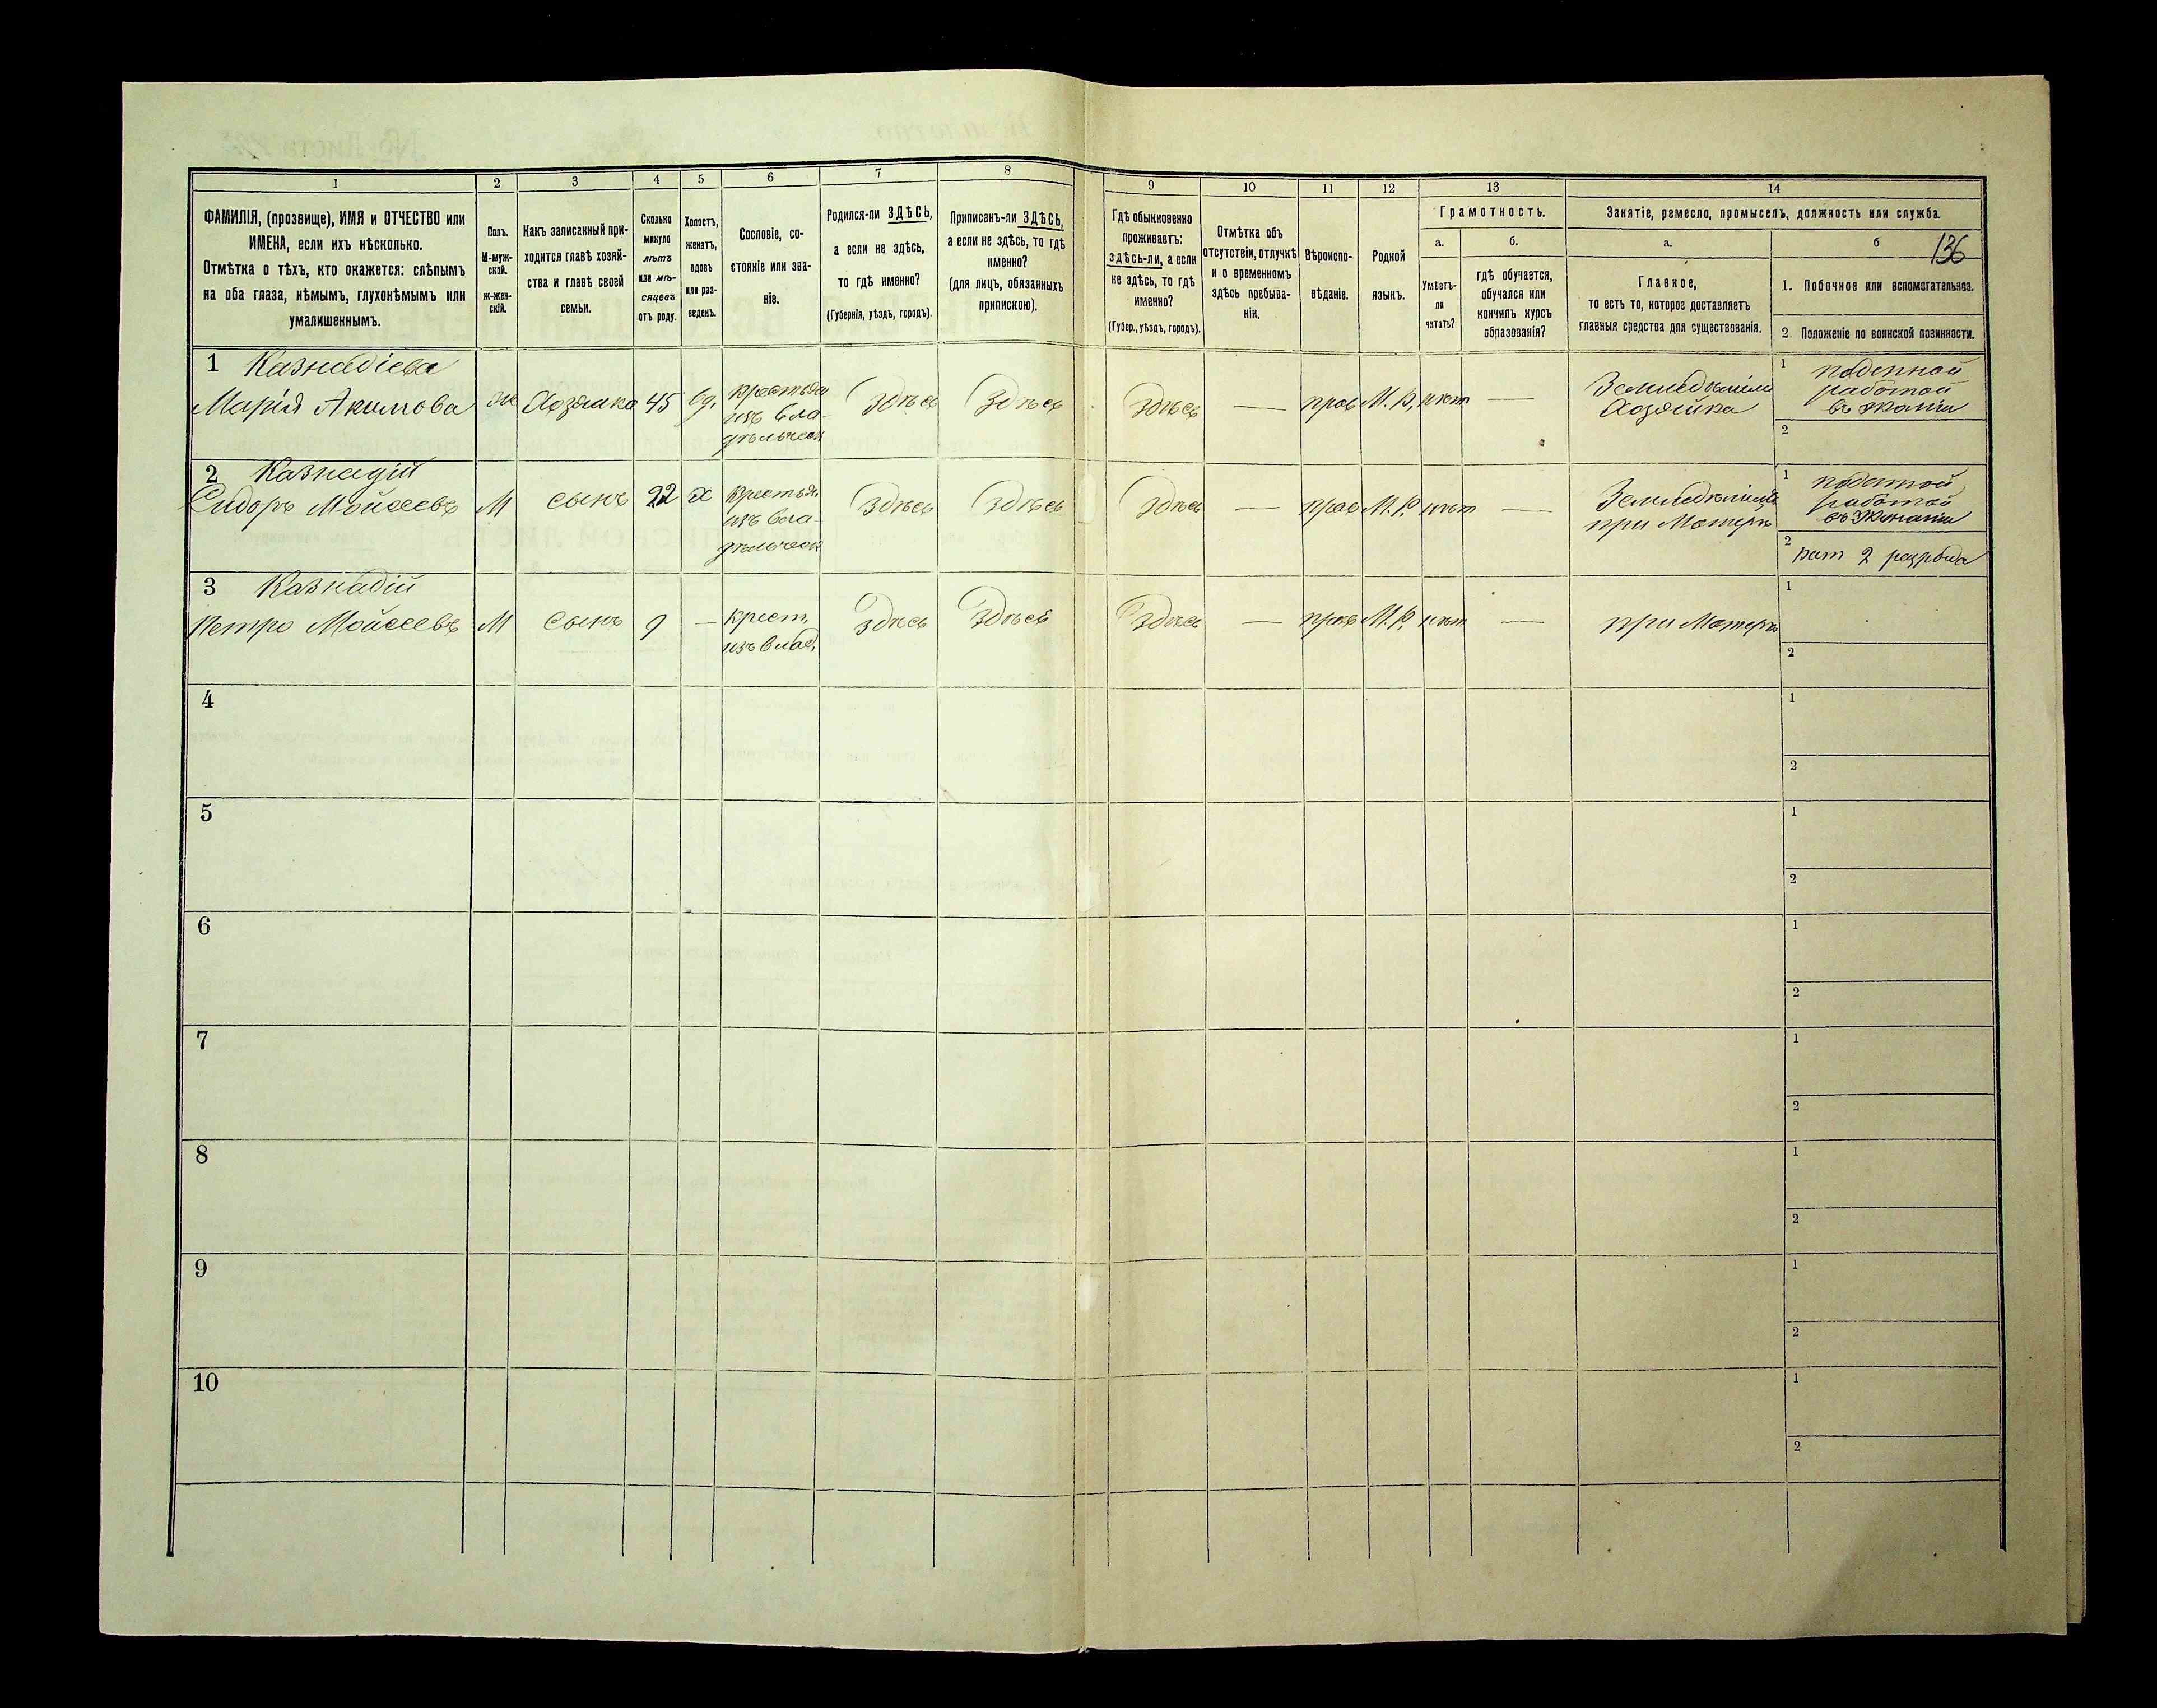 136
1 2 3 4 5 6 7 8 9 10 11 12 13 14
ФАМИЛІЯ, (прозвище), ИМЯ и ОТЧЕСТВО или
ИМЕНА, если ихъ нѣсколько.
Отмѣтка о тѣхъ, кто окажется: слѣпымъ
на оба глаза, нѣмымъ, глухонѣмымъ или
умалишеннымъ.
Полъ.
М-муж-
ской.
Ж-жен-
скій.
Какъ записанный при-
ходится главѣ хозяй-
ства и главѣ своей
семьи.
Сколько
минуло
лѣтъ
или мѣ-
сяцевъ
отъ роду.
Холостъ,
женатъ,
вдовъ
или раз-
веденъ.
Сословіе, со-
стояніе или зва-
ніе.
Родился-ли ЗДѢСЬ,
а если не здѣсь,
то гдѣ именно?
(Губернія, уѣздъ, городъ).
Приписанъ-ли ЗДѢСЬ,
а если не здѣсь, то гдѣ
именно?
(для лицъ, обязанныхъ
припискою).
Гдѣ обыкновенно
проживаетъ:
здѣсь-ли, а если
не здѣсь, то гдѣ
именно?
(Губер., уѣздъ, городъ).
Отмѣтка объ
отсутствіи, отлучкѣ
и о временномъ
здѣсь пребыва-
ніи.
Вѣроиспо-
вѣданіе.
Родной
языкъ.
Грамотность.
а.
Умѣетъ-
ли
читать?
б.
гдѣ обучается,
обучался или
кончилъ курсъ
образованія?
Занятіе, ремесло, промыселъ, должность или служба.
а.
Главное,
то есть то, которое доставляетъ
главныя средства для существованія.
б
1. Побочное или вспомогательное.
2. Положеніе по воинской повинности.
1 Казнадіева
Марія Акимова
ж
Хозяика
45
вд.
крестьян
изъ вла-
дѣльческ
Здѣсь
Здѣсь
Здѣсь
—
прав
М. Р.
нѣтъ
—
Земледѣліе
Хозяйка
1 поденной
работой
въ Эконаміи
2
2 Казнадій
Сидоръ Мойсеевъ
М
сынъ
22
х
крестьян
изъ вла-
дѣльческ
Здѣсь
Здѣсь
Здѣсь
—
прав
М. Р.
нѣтъ
—
при Матерѣ
1
работой
въ Эконаміи
2 рат 2 разряда
3 Казнадій
Петро Мойсеевъ
М
Сынъ
9
—
крест.
изъ влад.
Здѣсь
Здѣсь
Здѣсь
—
прав
М. Р.
нѣтъ
—
при Матерѣ
1
2
4
1
2
5
1
2
6
1
2
7
1
2
8
1
2
9
1
2
10
1
2